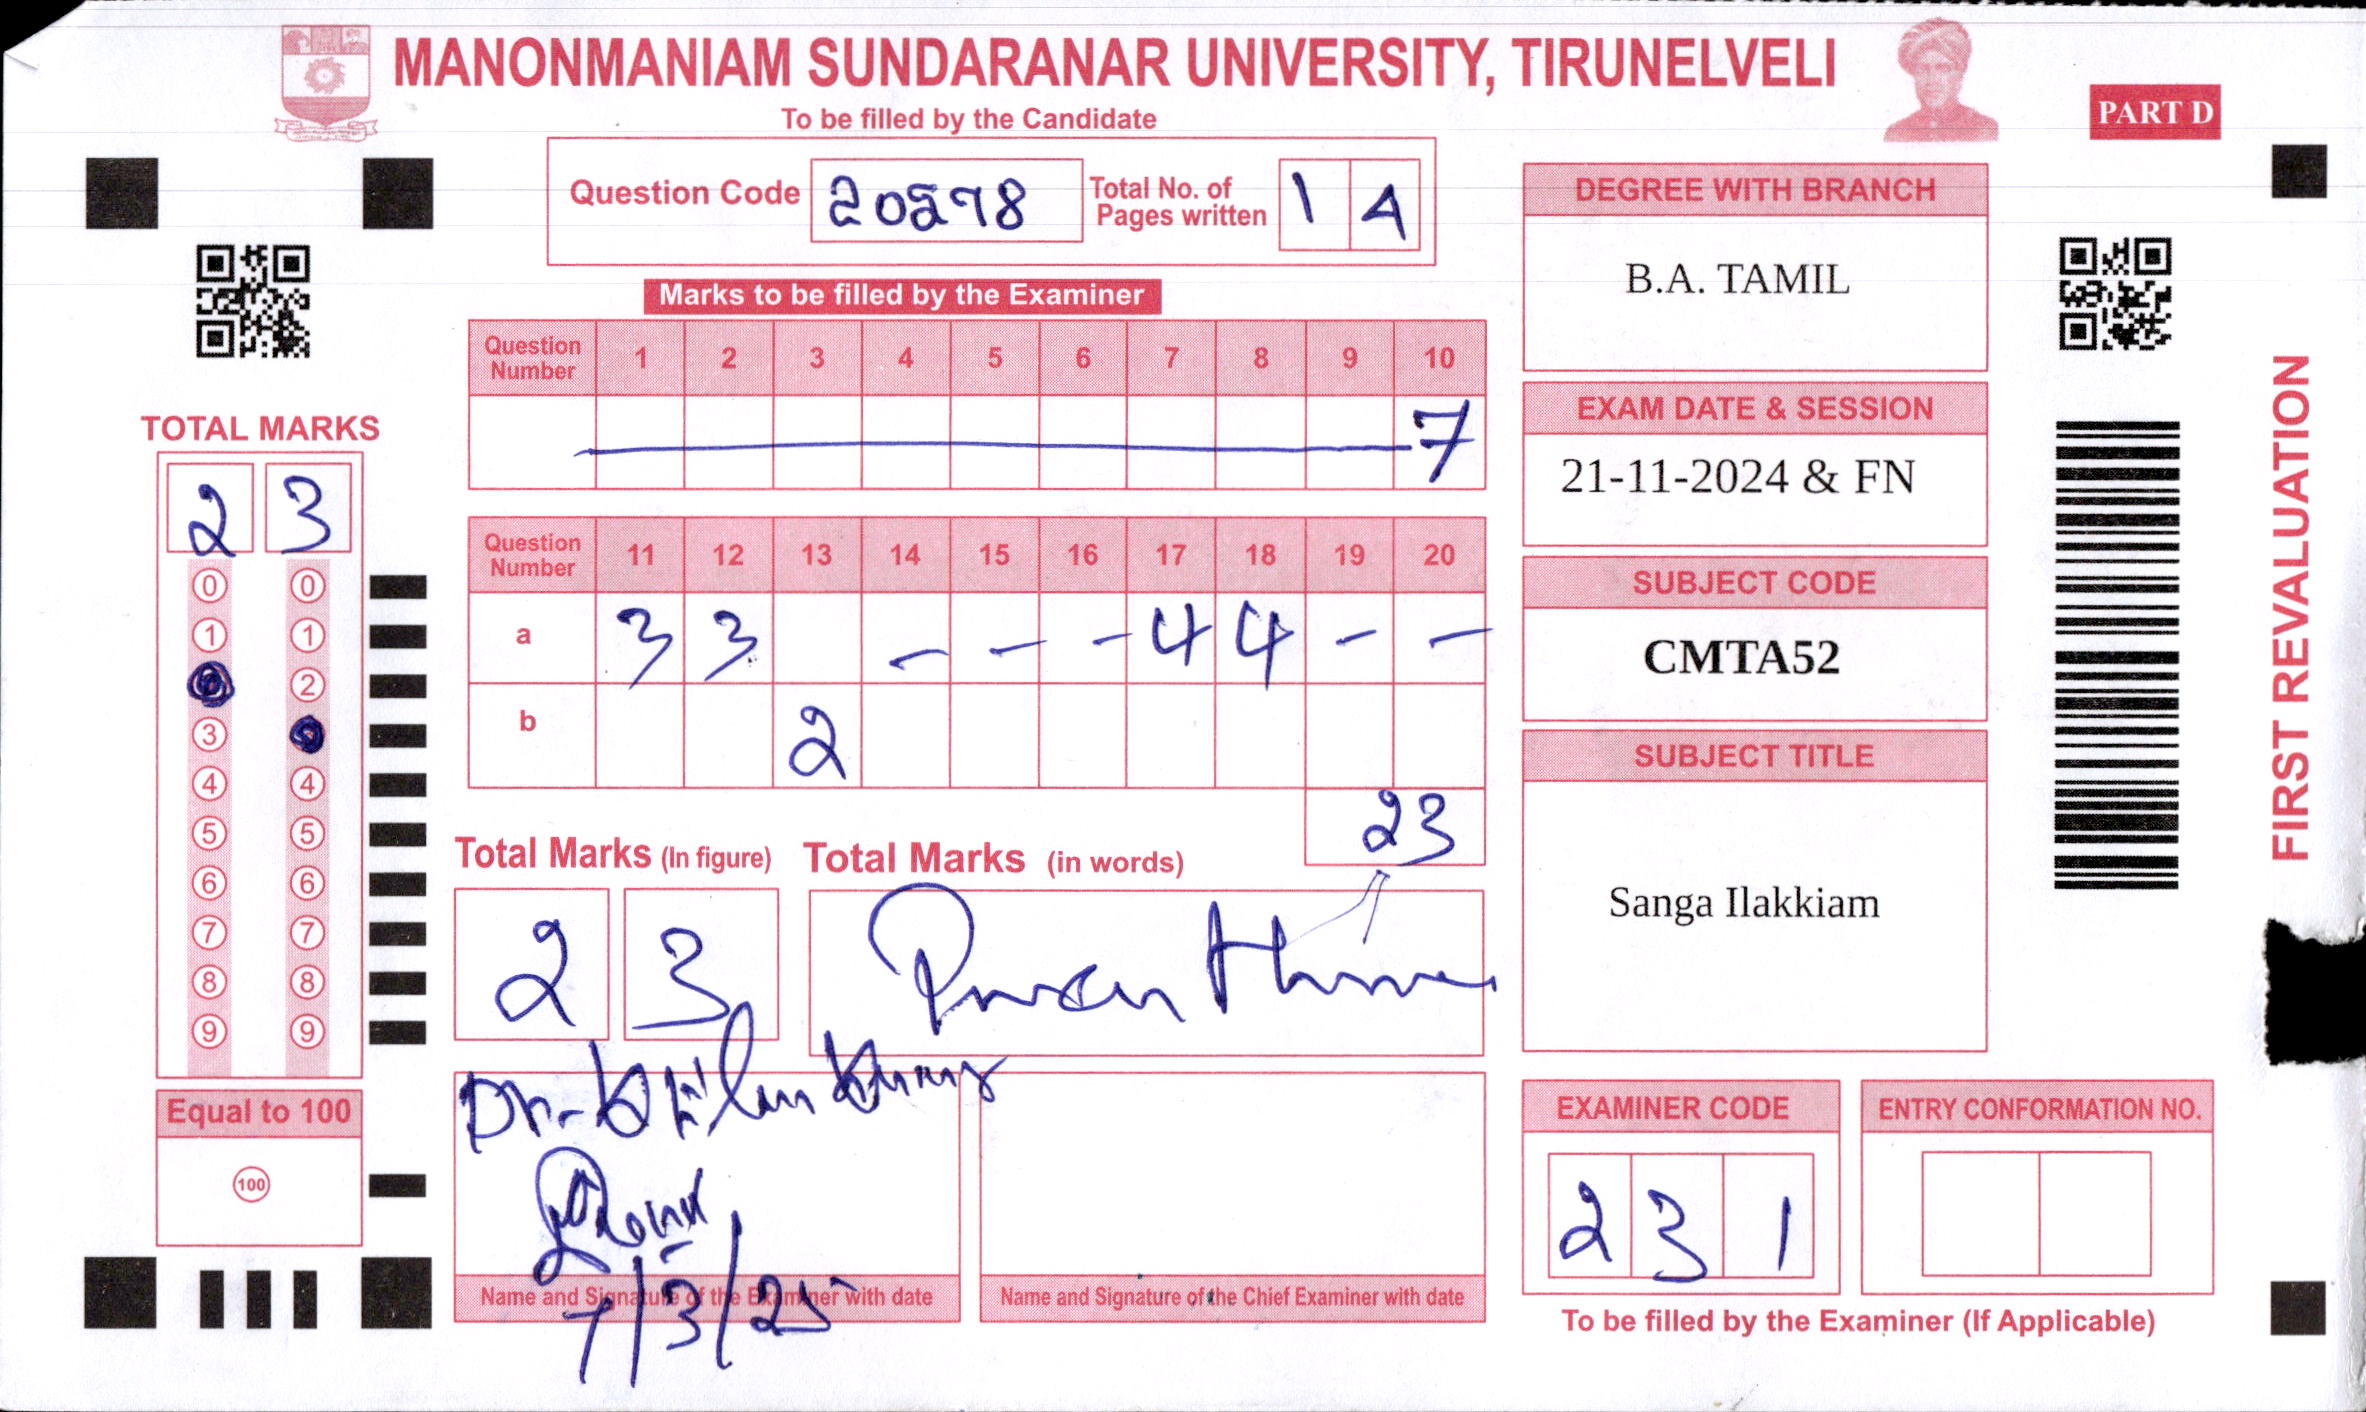 MANONMANIAM SUNDARANAR UNIVERSITY, TIRUNELVELI
PART D
To be filled by the Candidate
Question Code 20578 Total No. of Pages written 1 4
Marks to be filled by the Examiner
Question Number 1 2 3 4 5 6 7 8 9 10
7
Question Number 11 12 13 14 15 16 17 18 19 20
a 3 3 - - - 4 4 - -
b 2
23
Total Marks (In figure) Total Marks (in words)
2 3
Dr.
7/3/25
Name and Signature of the Examiner with date
Name and Signature of the Chief Examiner with date
TOTAL MARKS
2 3
0 0
1 1
2
3
4 4
5 5
6 6
7 7
8 8
9 9
Equal to 100
100
DEGREE WITH BRANCH
B.A. TAMIL
EXAM DATE & SESSION
21-11-2024 & FN
SUBJECT CODE
CMTA52
SUBJECT TITLE
Sanga Ilakkiam
EXAMINER CODE
2 3 1
ENTRY CONFORMATION NO.
To be filled by the Examiner (If Applicable)
FIRST REVALUATION